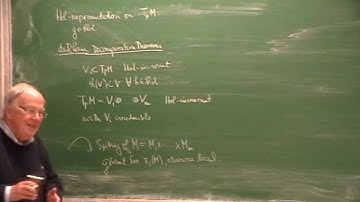 Hol-representation on TpM
g ∈ Hol
de Rham Decomposition Theorem
V ⊂ TpM Hol-invariant
h(V) ⊂ V ∀ h ∈ Hol
TpM = V₁ ⊕ ⊕ Vm Hol-invariant
with Vi irreducible
Splitting of M = M₁ × ... × Mm
global for π₁(M), otherwise local.